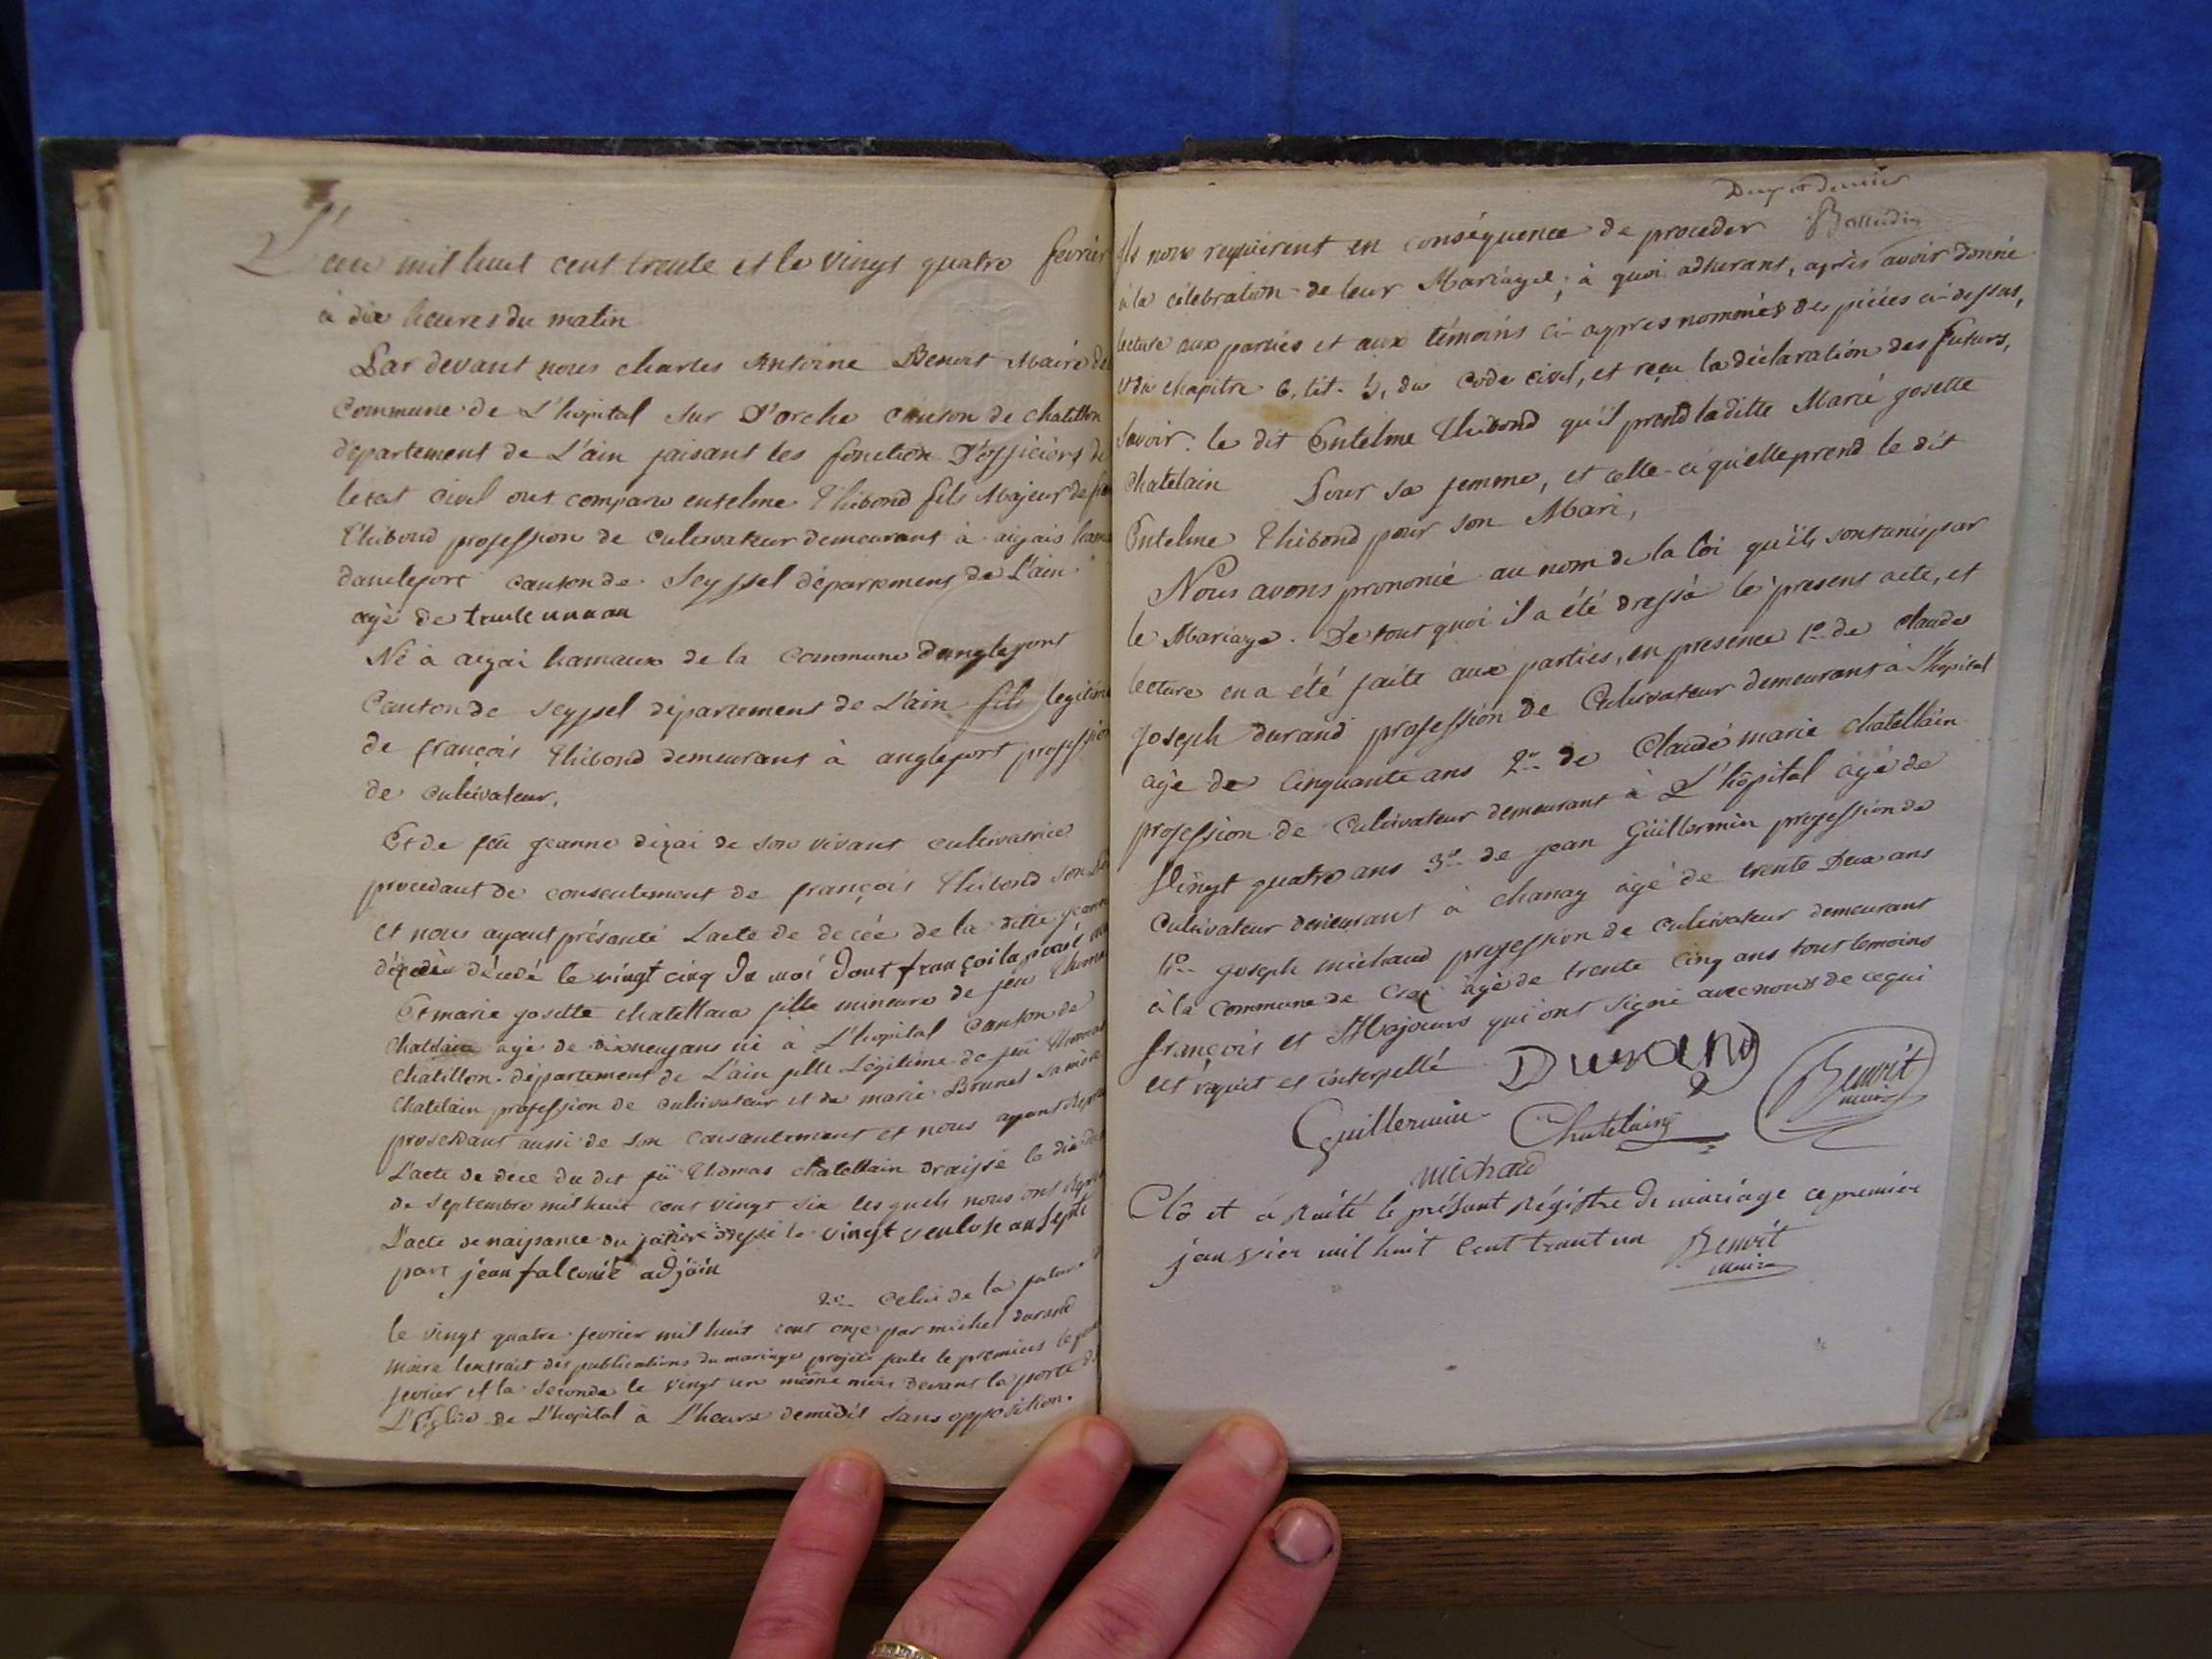 L'an mil huit cent trente et le vingt quatre fevrier
à dix heures du matin
Par devant nous charles Antoine Benoit Maire de
Commune de L'hopital sur D'orche canton de chatillon
département de L'ain faisant les fonction D'officiers de
létat civil ont comparu entelme Thibond fils Majeur de
Thibond profession de cultivateur demeurant à aigais
danglefort canton de Seyssel département de L'ain
agé de trente un an
Né à aigai hamaux de la commune danglefort
Canton de Seyssel département de L'ain fils legitime
de françois Thibond demeurant à anglefort profession
de cultivateur,
Et de feu jeanne digai de son vivant cultivatrice
procedant de consentement de françois Thibond son
et nous ayant présenté Lacte de decée de la ditte jeanne
décédé le vingt cinq de mai dont françoi
Et marie josette chatellain fille mineure de feu Thomas
Chatelain agé de dixneuf ans né à L'hopital Canton de
Chatillon département de L'ain fille Légitime de feu Thomas
Chatelain profession de cultivateur et de marie Brunet sa mère
prosedant aussi de son consentement et nous ayant
L'acte de decè du dit fü Thomas chatellain draissé le dix
de Septembre mil huit cent vingt six lesquels nous ont
L'acte de naissance du dressé le vingt ventose an sept
part jean falconié adjoin
2e celui de la future
le vingt quatre fevrier mil huit cent onze par michel durand
maire lextrait des publications du mariage projeté faite le premiers le
fevrier et la seconde le vingt un même mois devant la porte de
L'Eglise de L'hopital à L'heure demidit sans opposition.
Dix et dernier
ils nous requierent en conséquence de proceder
à la célébration de leur Mariage; à quoi adherant, après avoir donné
lecture aux parties et aux témoins ci-après nommés des pièces ci-dessus,
et du chapitre 6, tit. 5, du Code civil, et reçu la déclaration des futurs,
Savoir: le dit Entelme Thibond qu'il prend laditte Marie josette
Chatelain Pour sa femme, et celle-ci qu'elle prend le dit
Entelme Thibond pour son Mari,
Nous avons prononcé au nom de la loi qu'ils sont unis par
le Mariage. De tout quoi il a été dressé le présent acte, et
lecture en a été faite aux parties, en présence 1o de claude
joseph durand profession de Cultivateur demeurant à l'hopital
agé de Cinquante ans 2o de Claude marie chatellain
profession de Cultivateur demeurant à L'hôpital agé de
Vingt quatre ans 3o de jean Guillermin profession de
Cultivateur demeurant à chanay agé de trente Deux ans
4o joseph michaud profession de cultivateur demeurant
à la commune de agé de trente cinq ans tous temoins
françois et Majeurs qui ont signé avec nous de ce qui
est réquit et interpellé
Durand
Benoit
maire
Guillermin
Chatelain
michaud
Clô et arraité le présant Régistre de mariage ce premier
janvier mil huit cent trent un Benoit
maire